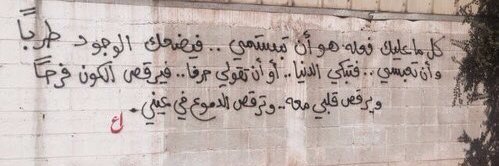 كل ما عليك فعله هو أن تبتسمي .. فيضحك الوجود طرباً
وأن تعبسي .. فتبكي الدنيا .. أو أن تقولي حرفا .. فيرقص الكون فرحاً
ويرقص قلبي معه .. وترقص الدموع في عيني .
ع